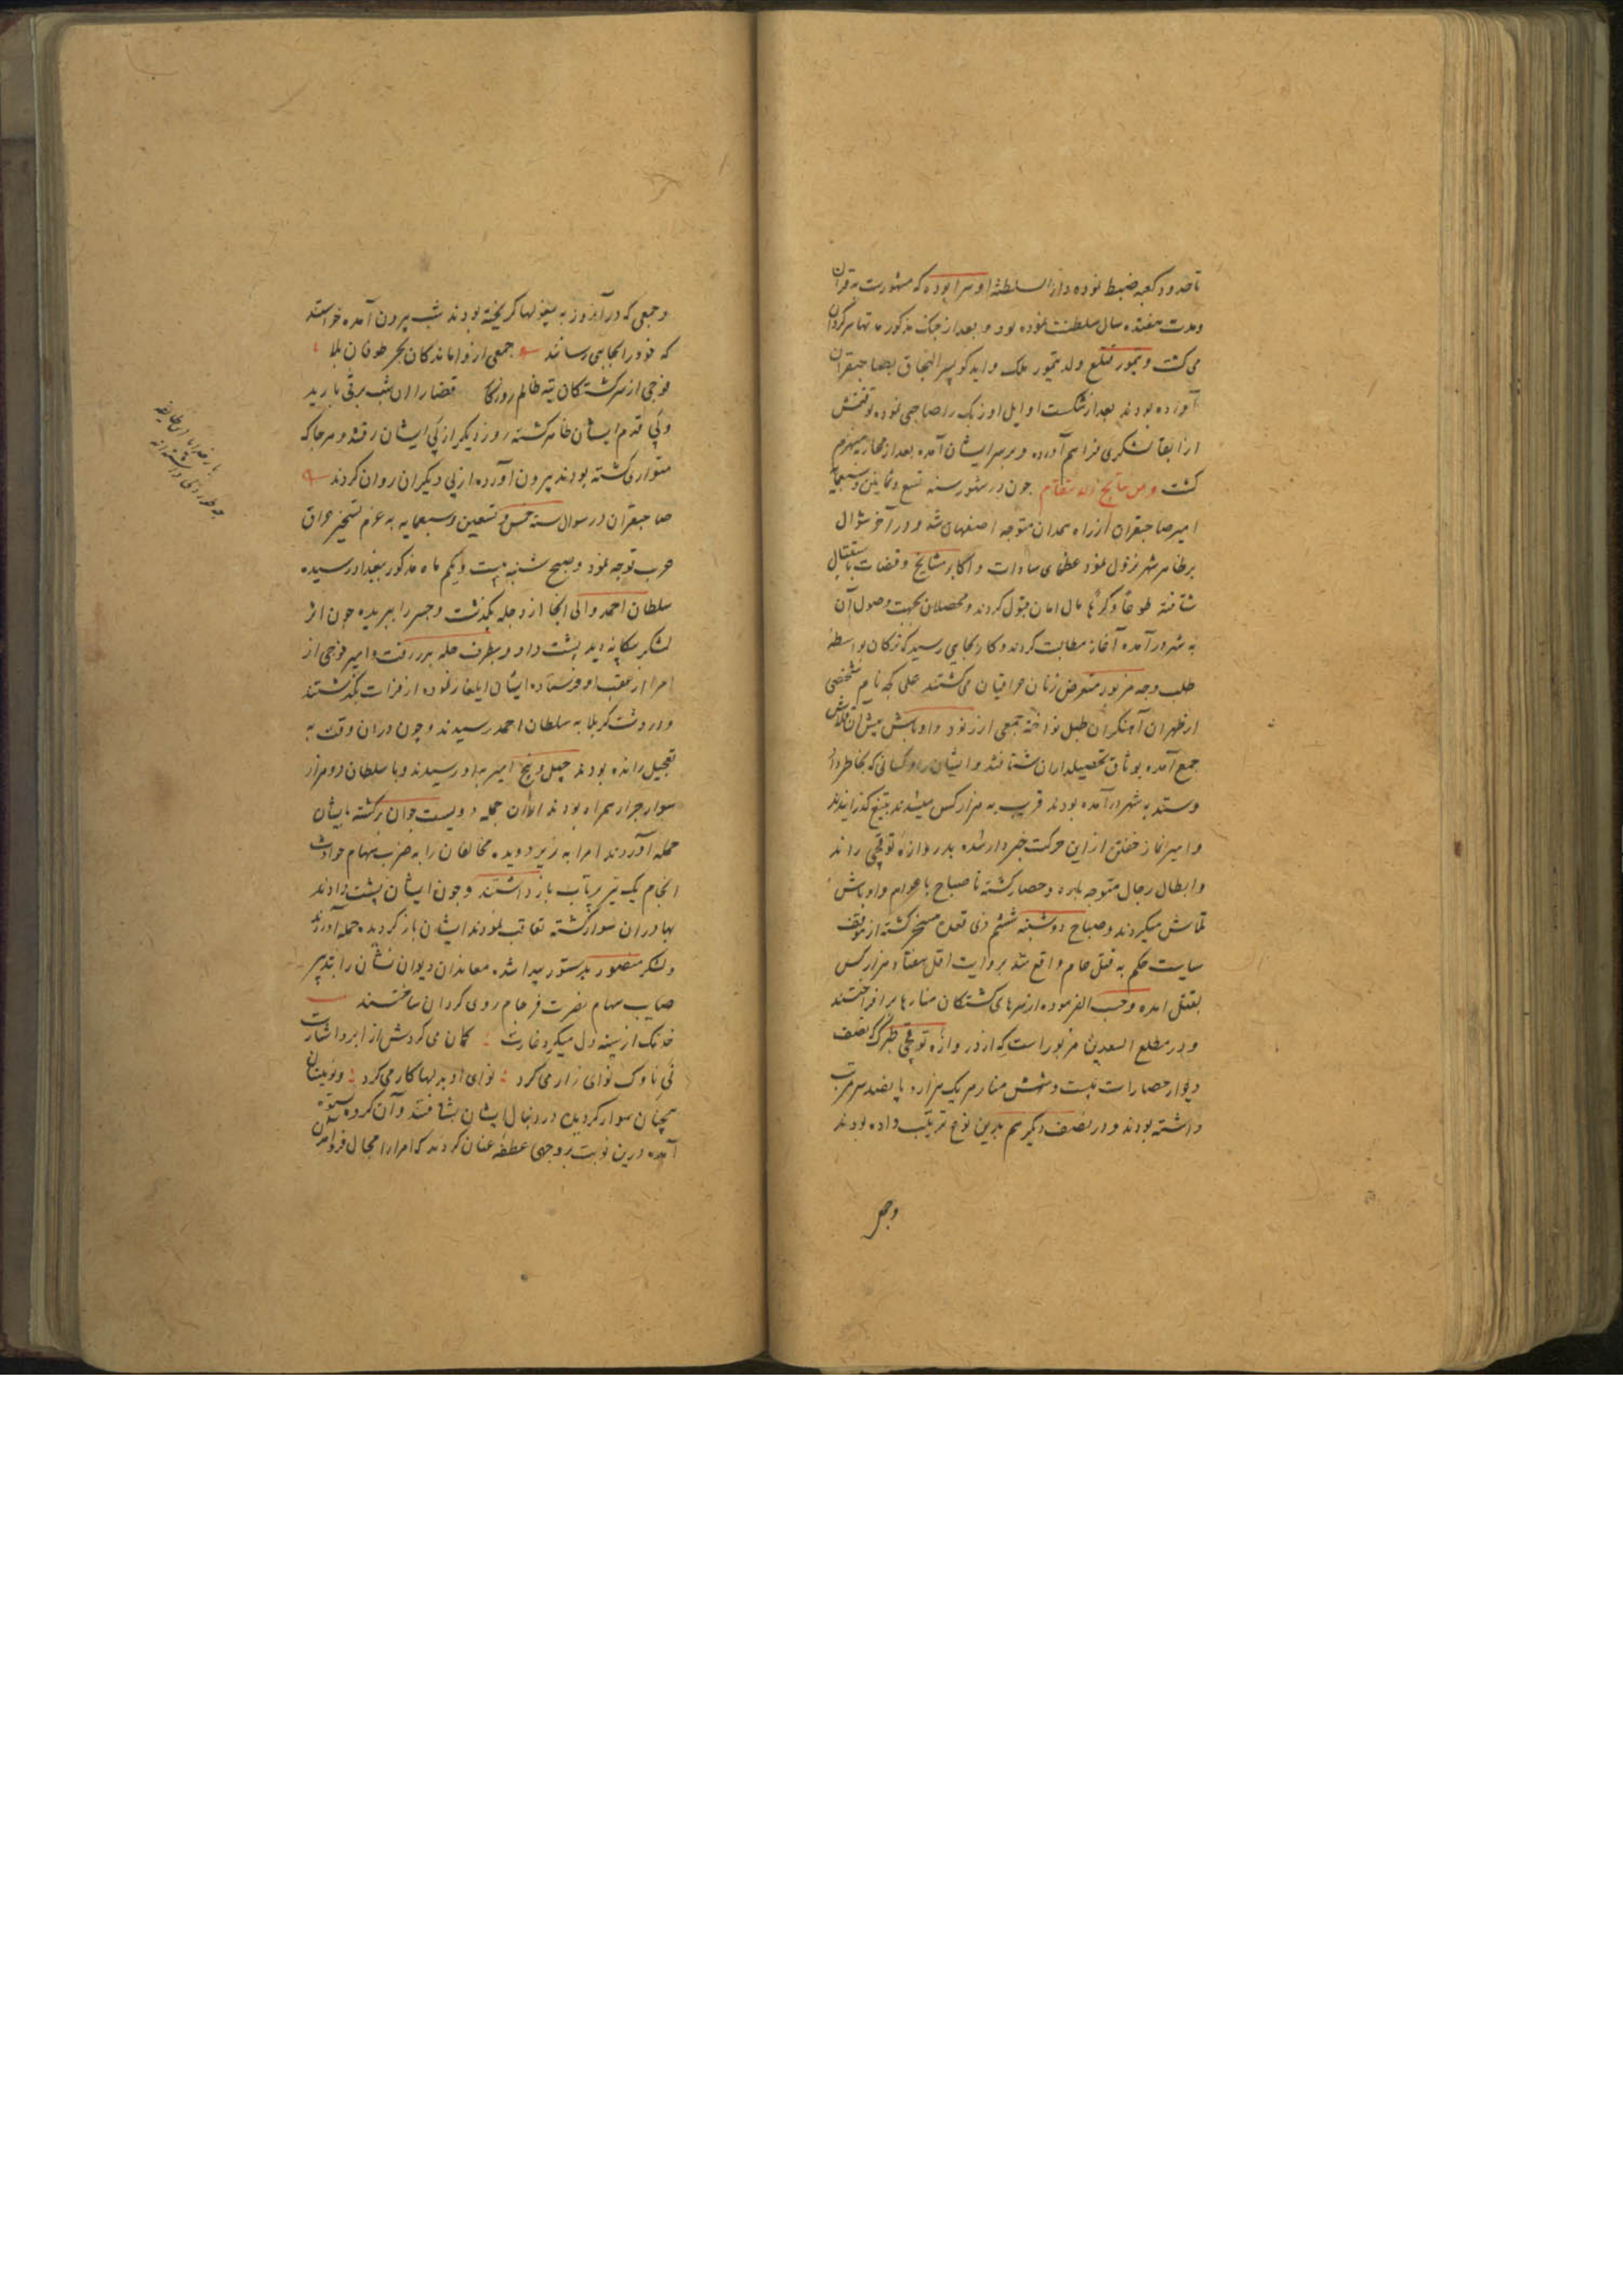 تا حدود کعبه ضبط نموده دار السلطنه او سرا بوده که مشهورست به قران
و مدت هفتده سال سلطنت نموده بود و بعد از جنک مذکور مدتها سرکردان
می کشت و تیمور قتلغ ولد تیمور ملک و ایدکو پسر التجاق بصاحبقران
آورده بودند بعد از شکست اوایل اوزبک را صاحبی نموده توقتمش
از آنجا لشکری فراهم آورده و بر سر ایشان آمده بعد از محاربه منهزم
کشت و من نتایج چون در شهور سنه تسع و ثمانین و سبعمایه
امیر صاحبقران از راه همدان متوجه اصفهان شد و در آخر شوال
بر ظاهر شهر نزول نمود عظمای سادات و اکابر مشایخ و قضات باستقبال
شتافته طوعاً و کرهاً مال امان قبول کردند و محصلان بجهت وصول آن
به شهر درآمده آغاز مطالبت کردند و کار بجایی رسید که ترکان بواسطه
طلب وجه مزبور متعرض زنان عراقیان می کشتند علی کچه نام شخصی
از طهران آهنکران طبل نواخته جمعی از رنود و اوباش پیش آن قلاش
جمع آمده بوثاق تحصیلداران شتافتند و ایشان را و کسانی که بخاطر داد
و ستد به شهر درآمده بودند قریب به هزار کس میشدند بتیغ کذرانیدند
و امیر نماز خفتن از این حرکت خبردار شده بدروازه توقچی راند
و ابطال رجال متوجه باره و حصار کشته تا صباح با عوام و اوباش
تماش میکردند و صباح دوشنبه ششم ذی قعده مسخر کشته از موقف
سیاست حکم به قتل عام واقع شد بروایت اقل هفتاد هزار کس
بقتل آمده و حسب الفرموده از سرهای کشتکان منارها برافراختند
و در مطلع السعدین مزبور است که از دروازه توقچی تا طبرک که نصف
دیوار حصار است بیست و شش منار هر یک هزار و پانصد سر مرتب
داشته بودند و در نصف دیکر هم بدین نوع ترتیب داده بودند
و جمعی
و جمعی که در آنروز به بیغولها کریخته بودند شب بیرون آمده خواستند
که خود را بجایی رسانند جمعی از واماندکان بحر طوفان بلا
فوجی از سرکشتکان تیه ظالم روزکار قضا را آن شب برفی بارید
و پی قدم ایشان ظاهر کشته روز دیکر از پی ایشان رفتند و هر جا که
متواری کشته بودند بیرون آورده از پی دیکران روان کردند
صاحبقران در شوال سنه خمس و تسعین و سبعمایه به عزم تسخیر عراق
عرب توجه نمود و صبح شنبه بیست و یکم ماه مذکور ببغداد رسیده
سلطان احمد والی آنجا از دجله بکذشت و جسر را ببریده چون اثر
لشکر بیکانه دید پشت داد و بطرف حله بدر رفت و امیر فوجی از
امرا از عقب او فرستاده ایشان ایلغار نموده از فرات بکذشتند
و در دشت کربلا به سلطان احمد رسیدند و چون در آن وقت به
تعجیل رانده بودند چهل و پنج امیر باو رسیدند و با سلطان دو هزار
سوار جرار همراه بودند از آن جمله دویست جوان برکشته بایشان
حمله آوردند امرا به زیر دویده مخالفان را به ضرب سهام حوادث
انجام یک تیر پرتاب باز داشتند و چون ایشان پشت دادند
بهادران سوار کشته تعاقب نمودند ایشان باز کردیده حمله آوردند
و لشکر منصور بدستور پیدا شده معاندان دیوان نشان را بتدبیر
صایب سهام نصرت فرجام روی کردان ساختند
خدنک از سینه دل میکرد غارت کمان می کردش از ابرو اشارت
نی ناوک نوای زار می کرد نوای او بدلها کار می کرد و نوینان
همچنان سوار کردیده در دنبال ایشان بشتافتند و آن کروه بستوه
آمده درین نوبت بروجهی عطف عنان کردند که امرا را مجال فرود آمدن